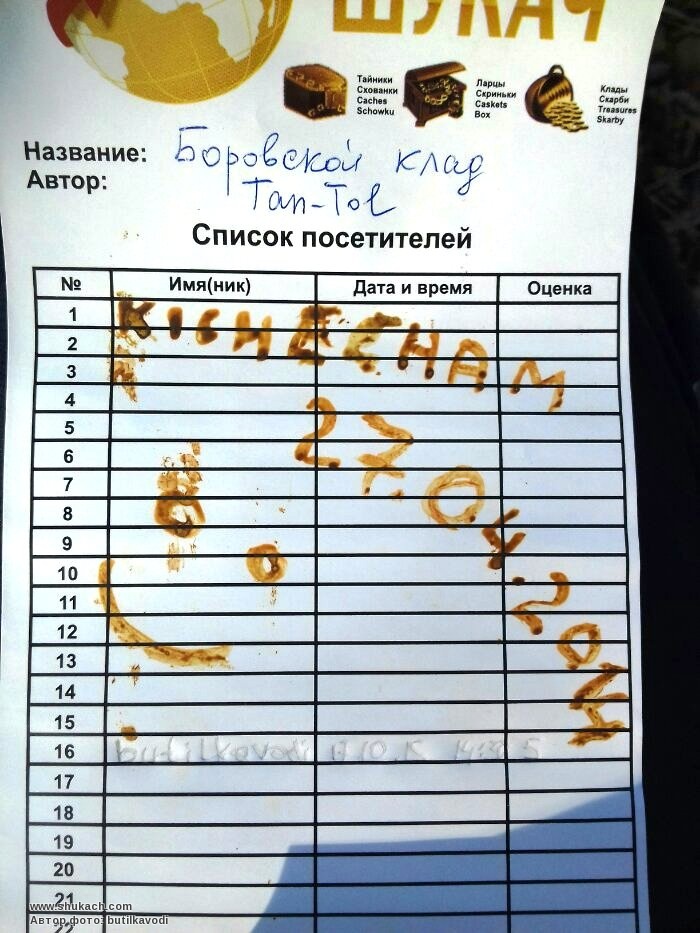 ШУКАЧ
Тайники
Схованки
Caches
Schowku
Ларцы
Скриньки
Caskets
Box
Клады
Скарби
Treasures
Skarby
Название: Боровской клад
Автор: Tan-Tol
Список посетителей
№ Имя(ник) Дата и время Оценка
1
2
3
4
5
6
7
8
9
10
11
12
13
14
15
16 butilkavodi
17
18
19
20
21
22
27.04.2014
www.shukach.com
Автор фото: butilkavodi